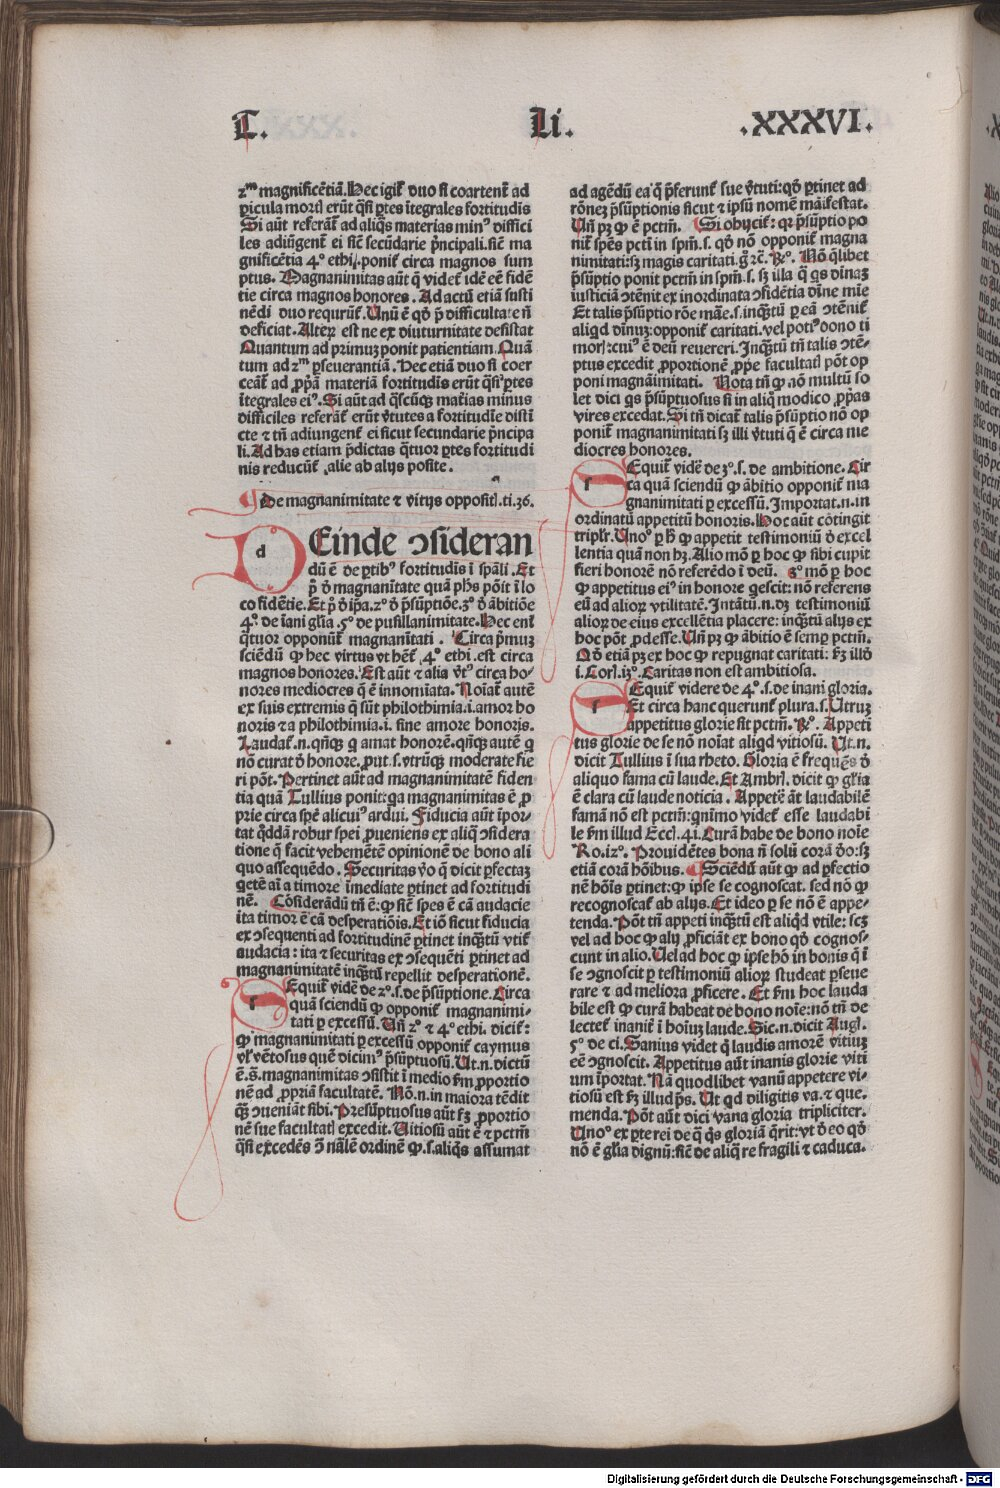 T. Li. .XXXVI.
zᵐ magnificētiā. Hec igiť duo si coartenť ad
ꝑicula morť erūt q̄si ꝑtes ītegrales fortitudīs
Si aūt referāť ad aliq̄s materias minꝰ diffici
les adiūgenť ei sic̄ secūdarie pͥncipali. sic̄ ma
gnificētia 4º ethi. poniť circa magnos sum
ptus. Magnanimitas aūt q̄ videť idē eē fidē
tie circa magnos honores. Ad actū etiā susti
nēdi duo reqͥrūť. Unū ē qď p̄ difficultate n̄
deficiat. Alteꝝ est ne ex diuturnitate desistat
Quantum ad primuꝫ ponit patientiam. Quā
tum ad zᵐ ꝑseuerantiā. Hec etiā duo si coer
ceāť ad ꝓpͥā materiā fortitudīs erūt q̄si ꝑtes
ītegrales eiꝰ. Si aūt ad q̄scūqꝫ mat̄ias minus
difficiles referāť erūt v̓tutes a fortitudīe disti
cte ⁊ tn̄ adiungenť ei sicut secundarie pͥncipa
li. Ad has etiam p̄dictas q̄tuor ꝑtes fortitudi
nis reducūť alie ab alijs posite.
De magnanimitate ⁊ vitijs oppositꝭ. ti. 36.
d
DEinde ↄsideran
dū ē de ꝑtibꝰ fortitudīs ī spāli. Et
pͦ ď magnanītate quā pħs pōit ī lo
co fidētie. Et pͦ ď ip̄a. zº ď p̄suptiōe. 3º ď ābitiōe
4º de īani gl̄ia. 5º de pusillanimitate. Hec enī
q̄tuor opponūť magnanītati. Circa pͥmuꝫ
sciēdū ꝙ hec virtus vt hēť 4º ethi. est circa
magnos honores. Est aūt ⁊ alia v̓tꝰ circa ho⸗
nores mediocres q̄ ē innomīata. Noīať autē
ex suis extremis q̄ sūt philothimia. i. amor ho
noris ⁊ a philothimia. i. sine amore honoris.
Laudať. n. qn̄qꝫ q amat honorē. qn̄qꝫ autē q
nō curat ď honore. ꝓut. s. vtrūqꝫ moderate fie
ri pōt. Pertinet aūt ad magnanimitatē fiden
tia quā Tullius ponit: qa magnanimitas ē ꝓ
prie circa spē alicuiꝰ ardui. Fiducia aūt īpor⸗
tat q̄ddā robur spei ꝓueniens ex aliq̄ ↄsidera
tione q̄ facit vehemētē opinionē de bono ali
quo assequēdo. Securitas v̓o q̄ dicit ꝑfectaꝫ
qetē aī a timore īmediate ꝑtinet ad fortitudi
nē. Cōsiderādū tn̄ ē: ꝙ sic̄ spes ē cā audacie
ita timor ē cā desperatiōis. Et iō sicut fiducia
ex ↄsequenti ad fortitudinē ꝑtinet inq̄ꝫtū vtiť
audacia: ita ⁊ securitas ex ↄsequēti ꝑtinet ad
magnanimitatē inq̄ꝫtū repellit desperationē.
SEquiť vidē de zº. s. de p̄suptione. Circa
quā sciendū ꝙ opponiť magnanimi⸗
tati ꝑ excessū. Un̄ zº ⁊ 4º ethi. diciť:
ꝙ magnanimitati ꝑ excessū opponiť caymus
vl̓ vētosus quē dicimꝰ p̄suptuosū. Ut. n. dictū
ē. s̄. magnanimitas ↄsistit ī medio fm̄ ꝓportio
nē ad ꝓpriā facultatē. Nō. n. in maiora tēdit
q̄ꝫ ↄueniat sibi. Presūptuosus aūt fꝫ ꝓportio
nē sue facultatꝭ excedit. Uitiosū aūt ē ⁊ pctm̄
q̄si excedēs ↄ̄ nālē ordinē ꝙ. s. aliq̄s assumat
ad agēdū ea q̄ p̄ferunť sue v̓tuti: qď ꝑtinet ad
rōneꝫ p̄suptionis sicut ⁊ ip̄sū nomē māifestat.
Un̄ pꝫ ꝙ ē pctm̄. Si obijciť: qꝛ p̄suptio po
niť spēs pcti in spm̄. s. qď nō opponiť magna
nimitati: sꝫ magis caritati. g̊ rc̄. ℞º. Nō q̄libet
p̄suptio poniť pctm̄ in spm̄. s. sꝫ illa q̄ qs dīnaꝫ
iusticiā ↄtēnit ex inordinata ↄfidētia dīne mīe
Et talis p̄suptio rōe māe. s. inq̄ꝫtū ꝑ eā ↄtēniť
aliqd dīnuꝫ: opponiť caritati. vel potiꝰ dono ti
morꝭ: cuiꝰ ē deū reuereri. Inq̄ꝫtū tn̄ talis ↄtē⸗
ptus excedit ꝓportionē ꝓp̄e facultatꝭ pōt op
poni magnāimitati. Nota tn̄ ꝙ nō multū so
let dici qs p̄suptuosus si in aliq̄ modico ꝓpͥas
vires excedat. Si tn̄ dicať talis p̄suptio nō op
poniť magnanimitati sꝫ illi v̓tuti q̄ ē circa me
diocres honores.
SEquiť vidē de 3º. s. de ambitione. Cir
ca quā sciendū ꝙ ābitio opponiť ma
gnanimitati ꝑ excessū. Importat. n. in
ordinatū appetitū honoris. Hoc aūt cōtingit
tripl̓r. Unoº ꝑ h̄ ꝙ appetit testimoniū ď excel
lentia quā non hꝫ. Alio mō ꝑ hoc ꝙ sibi cupit
fieri honorē nō referēdo ī deū. 3º mō ꝑ hoc
ꝙ appetitus eiꝰ in honore qescit: nō referens
eū ad alioꝝ vtilitatē. Intātū. n. dꝫ testimoniū
alioꝝ de eius excellētia placere: inq̄ꝫtū alijs ex
hoc pōt ꝓdesse. Un̄ pꝫ ꝙ ābitio ē semꝑ pctm̄.
Qď etiā pꝫ ex hoc ꝙ repugnat caritati: fꝫ illď
i. Corī. iꝫº. Caritas non est ambitiosa.
SEquiť videre de 4º. s. de inani gloria.
Et circa hanc querunť plura. s. Utruꝫ
appetitus glorie sit pctm̄. ℞º. Appeti
tus glorie de se nō noīat aliqd vitiosū. Ut. n.
dicit Tullius ī sua rheto. Gloria ē frequēs ď
aliquo fama cū laude. Et Ambrꝭ. dicit ꝙ gl̄ia
ē clara cū laude noticia. Appetē āt laudabilē
famā nō est pctm̄: qnīmo videť esse laudabi
le fm̄ illud Eccī. 41. Curā habe de bono noīe
Ro. iꝫº. Prouidētes bona n̄ solū corā ďo: sꝫ
etiā corā hōibus. Sciēdū aūt ꝙ ad ꝑfectio
nē hōīs ꝑtinet: ꝙ ipse se cognoscat. sed nō ꝙ
recognoscať ab alijs. Et ideo ꝑ se nō ē appe⸗
tenda. Pōt tn̄ appeti inq̄ꝫtū est aliqd vtile: scꝫ
vel ad hoc ꝙ alij ꝓficiāt ex bono qď cognos⸗
cunt in alio. Uel ad hoc ꝙ ipse hō in bonis q̄ ī
se ↄgnoscit ꝑ testimoniū alioꝝ studeat ꝑseue
rare ⁊ ad meliora ꝓficere. Et fm̄ hoc lauda
bile est ꝙ curā habeat de bono noīe: nō tn̄ de
lecteť inaniť ī hoīuꝫ laude. Sic. n. dicit Augꝭ.
5º de ci. Sanius videt q̄ laudis amorē vitiuꝫ
eē ↄgnoscit. Appetitus aūt inanis glorie viti
um īportat. Nā quodlibet vanū appetere vi⸗
tiosū est fꝫ illud ps̄. Ut qd diligitis va. ⁊ que.
menda. Pōt aūt dici vana gloria tripliciter.
Unoº ex ꝑte rei de q̄ q̄s gloriā q̄rit: vt ď eo qď
nō ē gl̄ia dignū: sic̄ de aliq̄ re fragili ⁊ caduca.
Digitalisierung gefördert durch die Deutsche Forschungsgemeinschaft - DFG